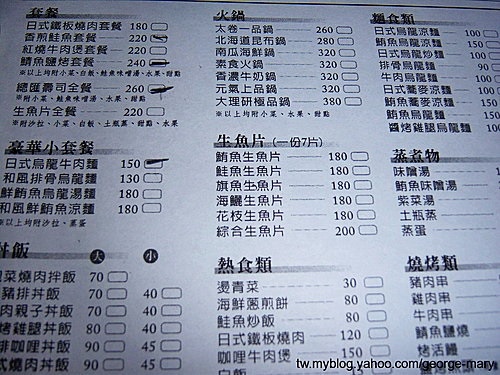 套餐
日式鐵板燒肉套餐 180
香煎鮭魚套餐 220
紅燒牛肉煲套餐 220
鯖魚鹽烤套餐 240
※以上均附小菜、白飯、鮭魚味噌湯、水果、甜點
總匯壽司全餐 260
※附小菜、鮭魚味噌湯、水果、甜點
生魚片全餐 220
※附沙拉、小菜、白飯、土瓶蒸、甜點、水果
豪華小套餐
日式烏龍牛肉麵 150
和風排骨烏龍 130
鮮鮪魚烏龍麵 180
和風鮮鮪魚涼麵 180
※以上均附沙拉、蒸蛋
丼飯 大 小
燒肉拌飯 70
豬排丼飯 70 40
肉親子丼飯 70 40
烤雞腿丼飯 80 40
咖哩丼飯 90 45
燒肉丼飯 90 45
火鍋
太卷一品鍋 260
北海道昆布鍋 280
南瓜海鮮鍋 320
素食火鍋 320
香濃牛奶鍋 320
元氣上品鍋 320
大理研極品鍋 380
※以上均附小菜、水果、甜點
生魚片 (一份7片)
鮪魚生魚片 180
鮭魚生魚片 180
旗魚生魚片 180
海鱺生魚片 180
花枝生魚片 180
綜合生魚片 200
熱食類
燙青菜 30
海鮮蔥煎餅 80
鮭魚炒飯 80
日式鐵板燒肉 120
咖哩牛肉煲 150
白飯 15
麵食類
日式烏龍涼麵 100
日式烏龍炒麵
排骨烏龍麵 90
牛肉烏龍麵 100
日式蕎麥涼麵 100
鮪魚烏龍麵 100
醬烤雞腿烏龍麵 100
蒸煮物
味噌湯
鮪魚味噌湯
紫菜湯
土瓶蒸
蒸蛋
燒烤類
豬肉串
雞肉串
牛肉串
鯖魚鹽燒
烤活鰻
tw.myblog.yahoo.com/george-mary